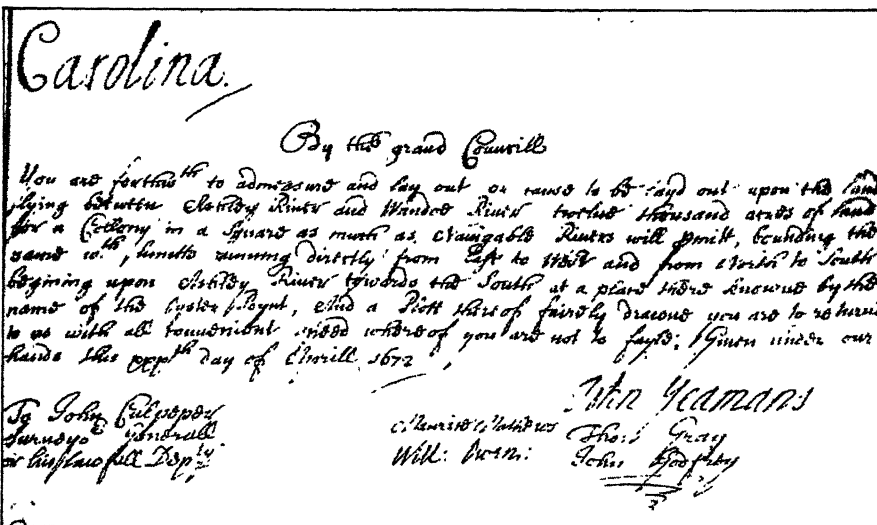 Carolina.
By the grand Councill
You are forthwth to admeasure and lay out or cause to be layd out upon the land
lying betweene Ashley River and Wandoe River twelve thousand acres of land
for a Collony in a Square as much as Navigable Rivers will pmitt, bounding the
same wth lines running directly from East to West and from North to South
begining upon Ashley River towards the South at a place there knowne by the
name of the Oyster poynt, And a Plott thereof fairely drawne you are to returne
to us with all convenient speed whereof you are not to fayle; Given under our
hands this xxxth day of Aprill 1672
To John Culpeper
Surveyor Generall
or his lawfull Depty
John Yeamans
Maurice Mathews
Thos Gray
Will: Owen:
John Godfrey